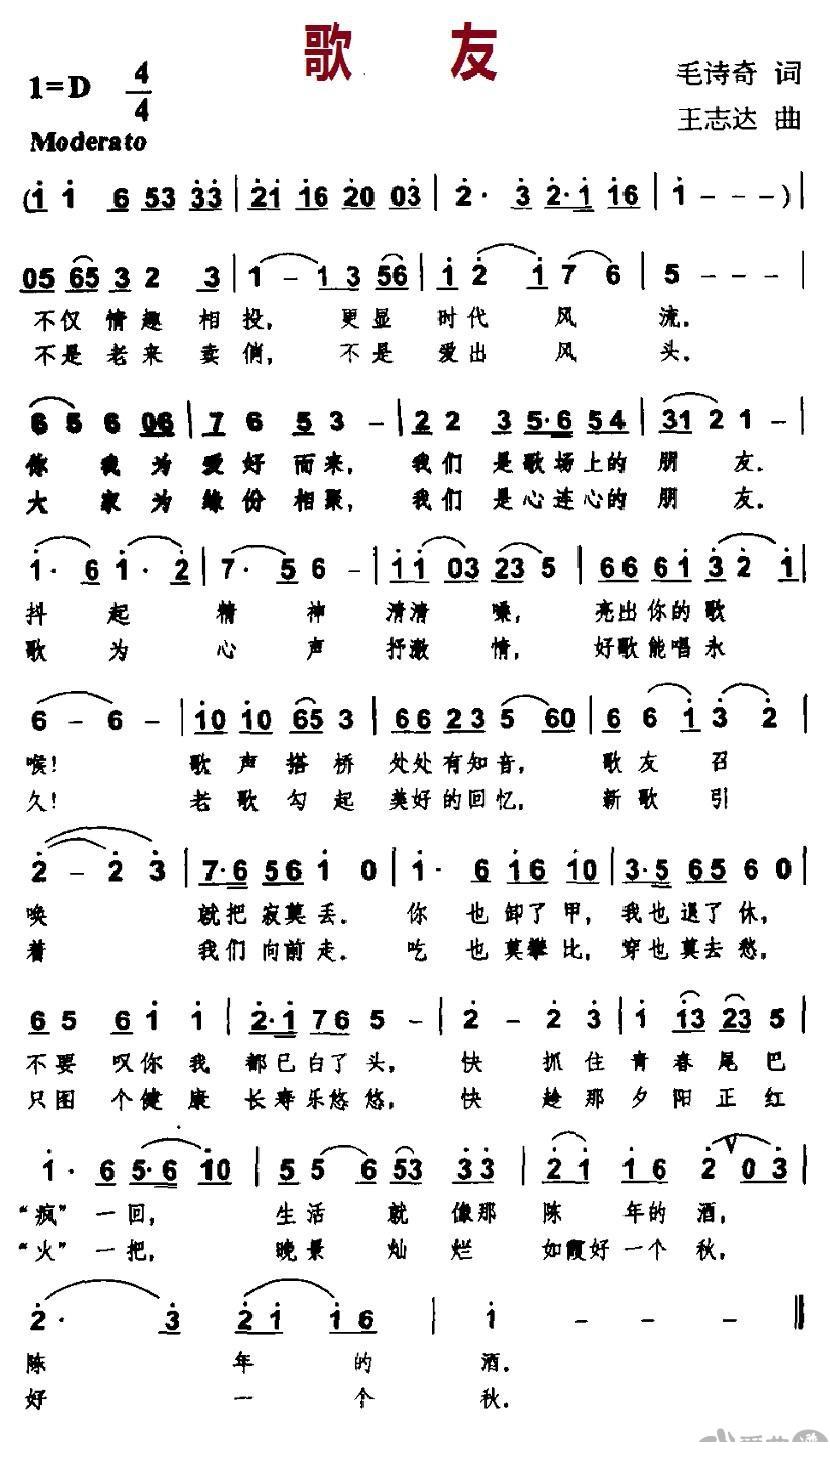 歌 友
1=D 4/4
毛诗奇 词
Moderato
王志达 曲
(i i 6 53 33 | 2i i6 20 03 | 2· 3 2·i i6 | i - - - )|
05 65 3 2 3 | 1 - 1 3 56 | i 2 i 7 6 | 5 - - - |
不仅 情趣 相投, 更显 时代 风 流.
不是 老来 卖俏, 不是 爱出 风 头.
6 5 6 06 | 7 6 5 3 - | 2 2 3 5·6 5 4 | 31 2 1 - |
你 我 为 爱好 而来, 我们 是歌场上的 朋 友.
大 家 为 缘份 相聚, 我们 是心连心的 朋 友.
i· 6 i· 2 | 7· 5 6 - | i i 03 23 5 | 6 6 6 i 3 2 i |
抖 起 精 神 清清 嗓, 亮出你的歌
歌 为 心 声 抒激 情, 好歌能唱永
6 - 6 - | i0 i0 65 3 | 6 6 2 3 5 60 | 6 6 i 3 2 |
喉! 歌 声 搭 桥 处处有知音, 歌友 召
久! 老 歌 勾 起 美好的回忆, 新歌 引
2 - 2 3 | 7·6 56 i 0 | i· 6 i6 i0 | 3·5 65 6 0 |
唤 就把 寂莫 丢. 你 也 卸了 甲, 我也 退了 休,
着 我们 向前 走. 吃 也 莫攀 比, 穿也 莫去 愁,
6 5 6 i i | 2·i 76 5 - | 2 - 2 3 | i i3 23 5 |
不要 叹你 我 都已白了 头, 快 抓住 青春尾巴
只图 个健 康 长寿乐悠 悠, 快 趁那 夕阳正红
i· 6 5·6 i0 | 5 5 6 53 3 3 | 2 i i 6 2 V 0 3 |
“疯” 一回, 生活 就 像那 陈 年的 酒,
“火” 一把, 晚景 灿 烂 如霞好一个 秋,
2· 3 2 i i 6 | i - - - ‖
陈 年 的 酒.
好 一 个 秋.